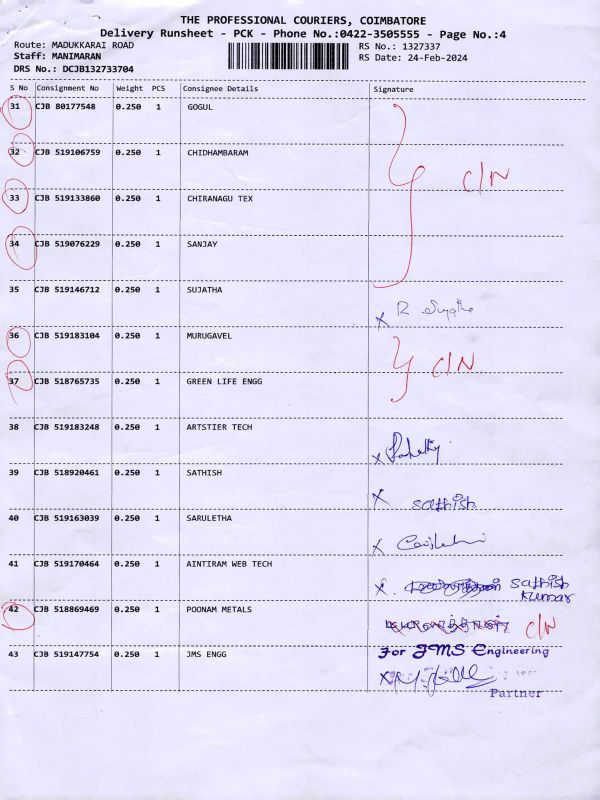 THE PROFESSIONAL COURIERS, COIMBATORE
Delivery Runsheet - PCK - Phone No.:0422-3505555 - Page No.:4
Route: MADUKKARAI ROAD RS No.: 1327337
Staff: MANIMARAN RS Date: 24-Feb-2024
DRS No.: DCJB132733704
S No Consignment No Weight PCS Consignee Details Signature
31 CJB 80177548 0.250 1 GOGUL
32 CJB 519106759 0.250 1 CHIDHAMBARAM
C/N
33 CJB 519133860 0.250 1 CHIRANAGU TEX
34 CJB 519076229 0.250 1 SANJAY
35 CJB 519146712 0.250 1 SUJATHA
x R
36 CJB 519183104 0.250 1 MURUGAVEL
C/N
37 CJB 518765735 0.250 1 GREEN LIFE ENGG
38 CJB 519183248 0.250 1 ARTSTIER TECH
x
39 CJB 518920461 0.250 1 SATHISH
x sathish
40 CJB 519163039 0.250 1 SARULETHA
x
41 CJB 519170464 0.250 1 AINTIRAM WEB TECH
x. sathish
kumar
42 CJB 518869469 0.250 1 POONAM METALS
C/N
43 CJB 519147754 0.250 1 JMS ENGG
For JMS Engineering
x
Partner